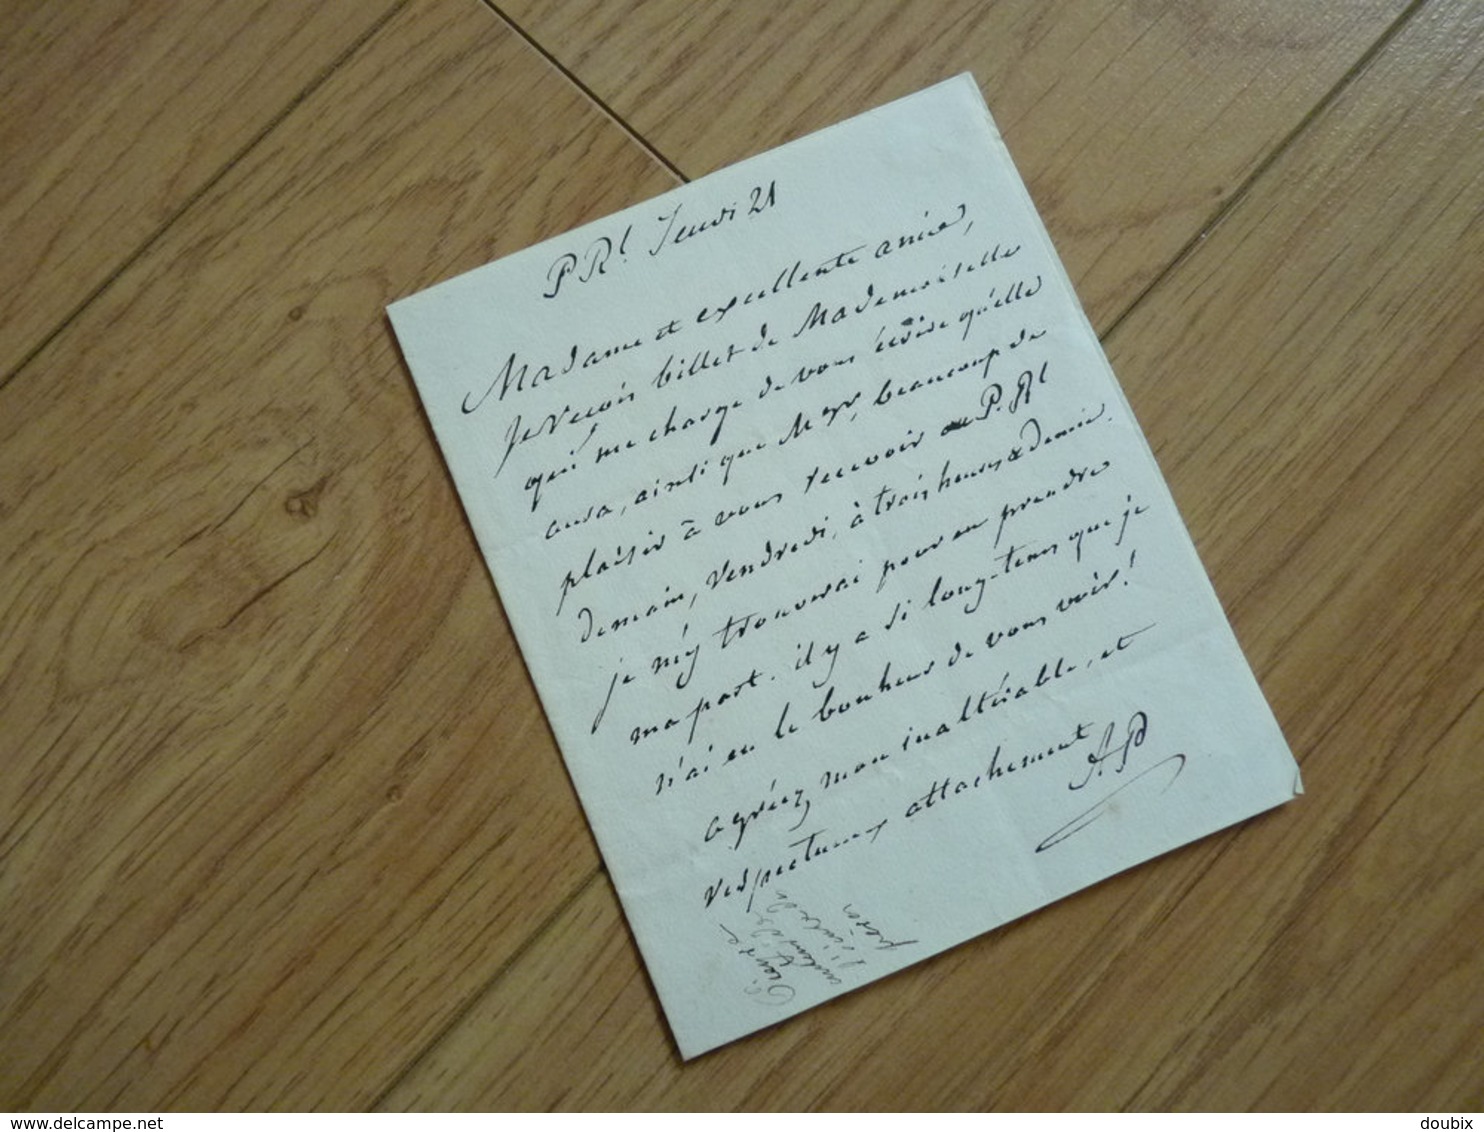 P. Rl. Jeudi 21
Madame et excellente amie,
Je reçois billet de Mademoiselle
qui me charge de vous écrire qu'elle
aura, ainsi que Mgr, beaucoup de
plaisir à vous recevoir au P. Rl
demain, vendredi, à trois heures & demie.
je m'y trouverai pour en prendre
ma part. il y a si long-tems que je
n'ai eu le bonheur de vous voir!
agréez, mon inaltérable, et
respectueux attachement
A.P.
www.delcampe.net
doubix